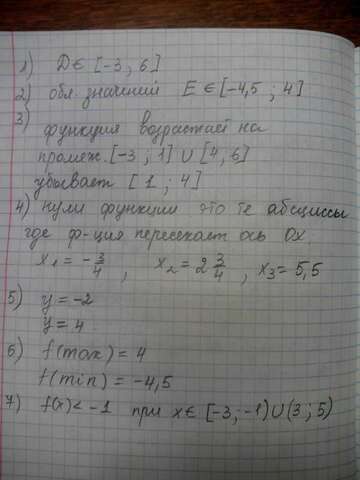 1) D ∈ [-3 ; 6]
2) обл. значений E ∈ [-4,5 ; 4]
3)
функция возрастает на
промеж. [-3 ; 1] ∪ [4, 6]
убывает [1 ; 4]
4) нули функции это те абсциссы
где ф-ция пересекает ось Ox.
x₁ = -3/4 , x₂ = 2 3/4 , x₃ = 5,5
5) y = -2
y = 4
6) f(max) = 4
f(min) = -4,5
7) f(x) < -1 при x ∈ [-3; -1) ∪ (3 ; 5)